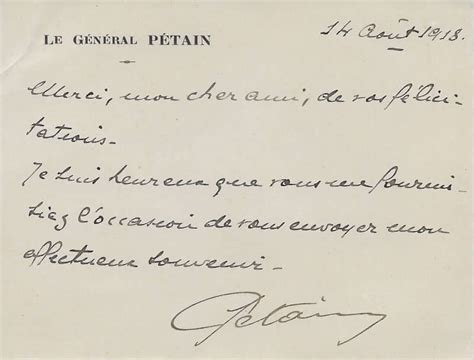 LE GÉNÉRAL PÉTAIN
14 Août 1918.
Merci, mon cher ami, de vos félici-
tations.
Je suis heureux que vous me fournis-
siez l'occasion de vous envoyer mon
affectueux souvenir.
Pétain